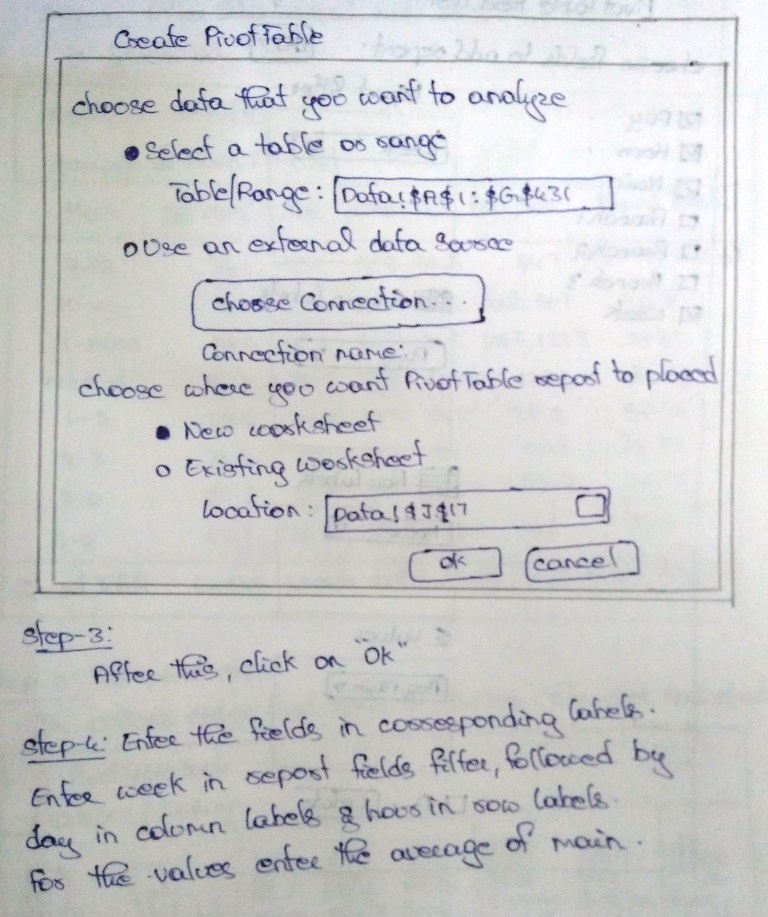 Create PivotTable
choose data that you want to analyze
Select a table or range
Table/Range: Data!$A$1:$G$431
Use an external data source
choose Connection...
Connection name:
choose where you want PivotTable report to placed
New worksheet
Existing worksheet
Location: Data!$J$17
ok cancel
Step-3:
After this, click on "Ok"
Step-4: Enter the fields in corresponding labels.
Enter week in report fields filter, followed by
day in column labels & hour in row labels.
for the values enter the average of main.